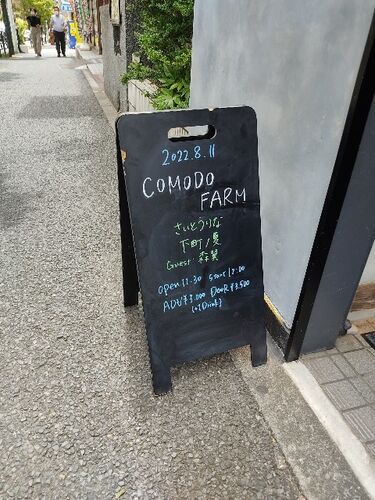 2022.8.11
COMODO
FARM
さいとうりな
下町ノ夏
Guest 森翼
open 11:30 Start 12:00
ADV ¥3,000 Door ¥3,500
(+1Drink)